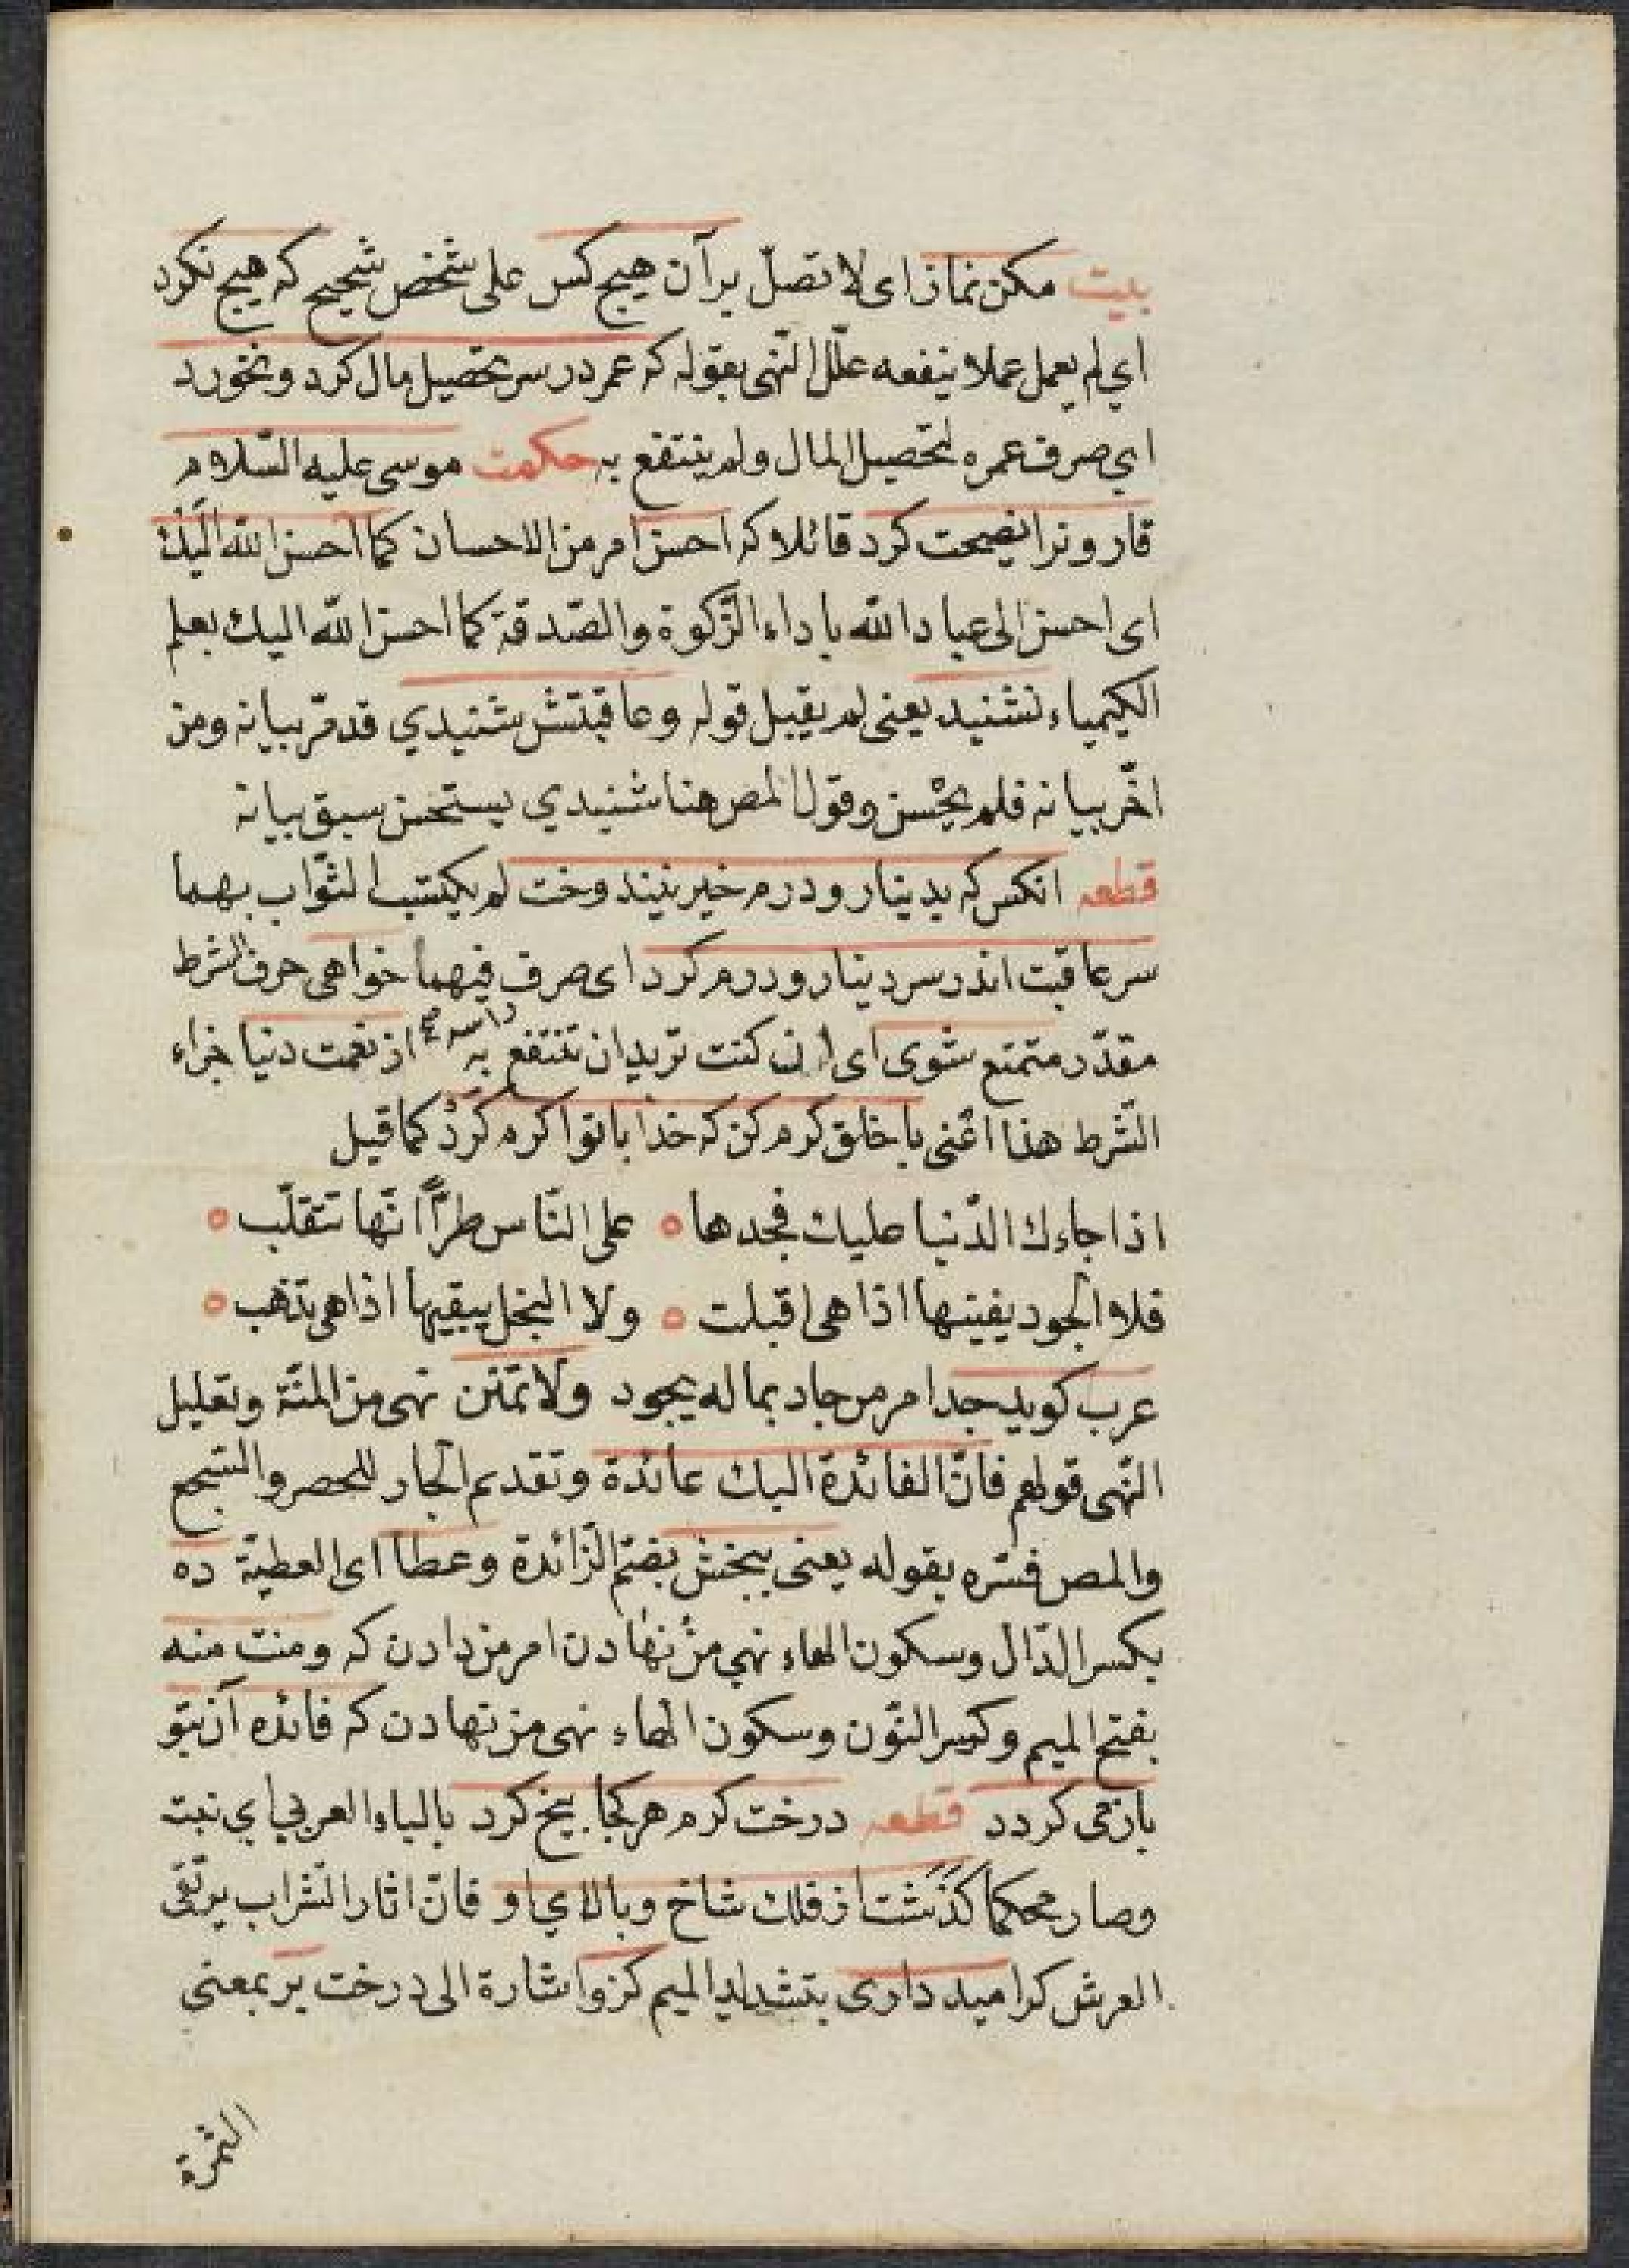 بيت مكن نماز اى لا تصلّ بر آن هيچ كس على شخص شحيح كه هيچ نكرد
اي لم يعمل عملا ينفعه علّل النّهى بقوله كه عمر در سر تحصيل مال كرد ونخورد
اي صرف عمره لتحصيل المال ولم ينتفع به حكمت موسى عليه السّلام
قارونرا نصيحت كرد قائلا كه احسن امر من الاحسان كما احسن الله اليك
اى احسن الى عباد الله باداء الزّكوة والصّدقة كما احسن الله اليك بعلم
الكيمياء نشنيد يعنى لم يقبل قوله وعاقبتش شنيدي قد مرّ بيانه ومن
اخّر بيانه فلم يحسن وقول المص هنا شنيدي يستحسن سبق بيانه
قطعه انكس كه بدينار ودرم خير نيندوخت لم يكتسب الثّواب بهما
سر عاقبت اندر سر دينار ودرم كرد اى صرف فيهما خواهى حرف الشرط
مقدّر متمتع شوى اى ان كنت تريد ان تنتفع به از نعمت دنيا جزاء
الشّرط هذا اعنى با خلق كرم كن كه خدا با توا كرم كرد كما قيل
اذا جاءك الدّنيا عليك فجد ها ه على النّاس طرّاً انّها تتقلّب ه
فلا الجود يفينها اذا هى اقبلت ه ولا البخل يبقيها اذا هى تذهب ه
عرب كويد جد امر من جاد بماله يجود ولا تمنن نهى من المنّة وتعليل
النّهى قولهم فانّ الفائدة اليك عائدة وتقديم الجار للحصر والسّجع
والمص فسّره بقوله يعنى ببخش بضمّ الزّائدة وعطا اى العطيّة ده
بكسر الدّال وسكون الهاء نهي من نهادن امر من دادن كه ومنت منه
بفتح الميم وكسر النّون وسكون الهاء نهى من نهادن كه فائده آن بتو
باز مى كردد قطعه درخت كرم هر كجا بيخ كرد بالباء العربي اي نبت
وصار محكما كذشت از فلك شاخ وبالاي او فانّ اثار الشّراب يرتقى
العرش كر اميد دارى بتشديد الميم كزو اشارة الى درخت بر بمعنى
الثمرة